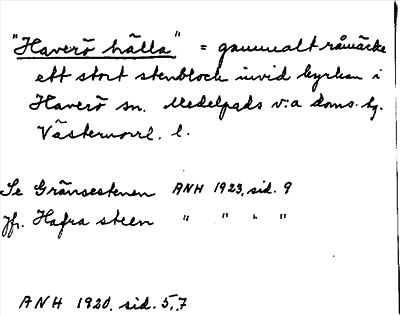 "Haverö hälla" = gammalt råmärke
ett stort stenblock invid kyrkan i
Haverö sn. Medelpads v:a doms. hg.
Västernorrl. l.
Se Gränsestenen ANH 1923, sid. 9
Jfr. Hafra steen " " " "
ANH 1920, sid. 5, 7